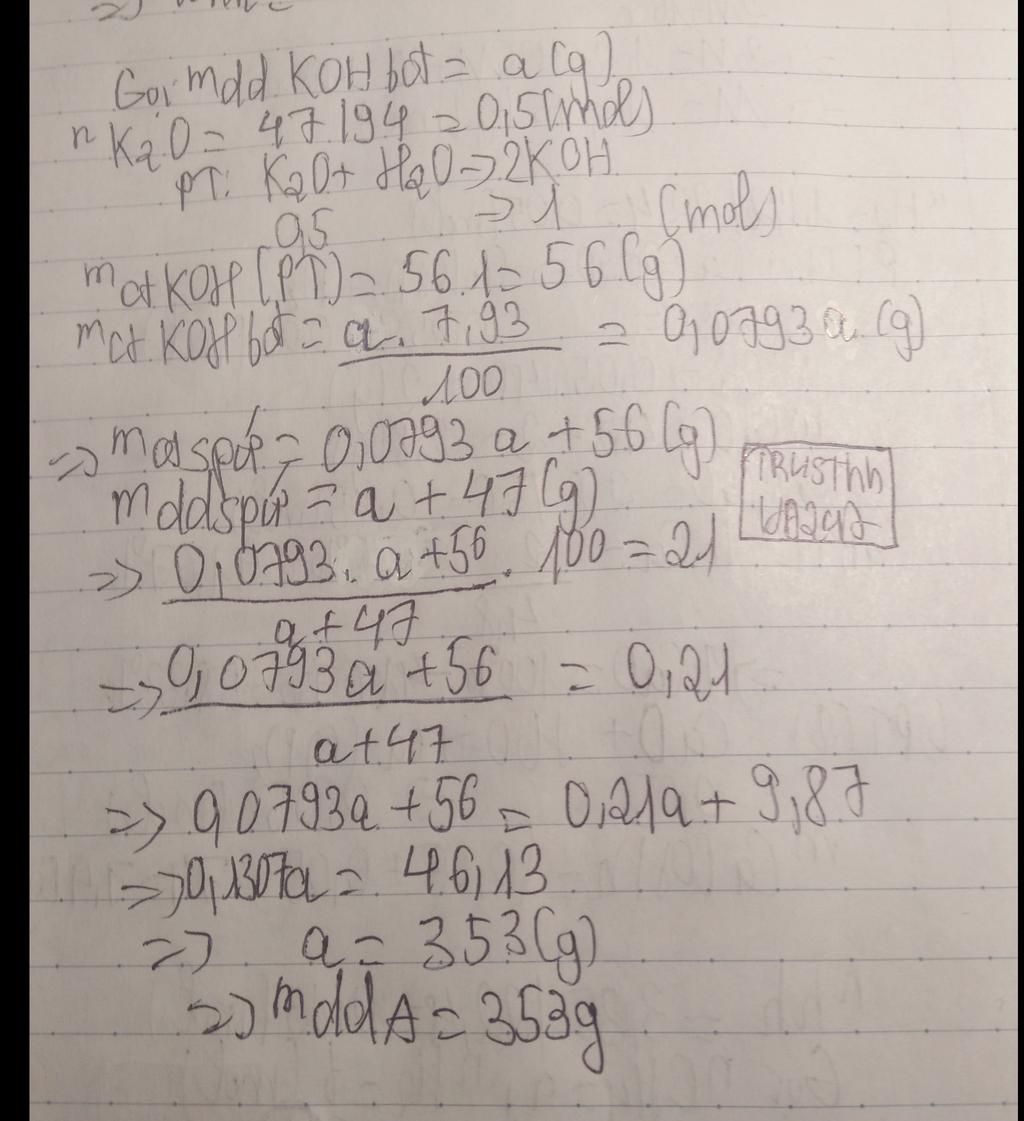 Gọi mdd KOH bđ = a (g)
n K2O = 47 : 94 = 0,5 (mol)
PT: K2O + H2O → 2KOH
0,5 → 1 (mol)
m ct KOH (PT) = 56.1 = 56 (g)
m ct KOH bđ = a. 7,93 / 100 = 0,0793a (g)
=> m ct spứ = 0,0793a + 56 (g)
m dd spứ = a + 47 (g)
TRUSThh
=> 0,0793.a + 56 / a + 47 . 100 = 21
=> 0,0793a + 56 / a + 47 = 0,21
=> 0,0793a + 56 = 0,21a + 9,87
=> 0,1307a = 46,13
=> a = 353 (g)
=> m dd A = 353g